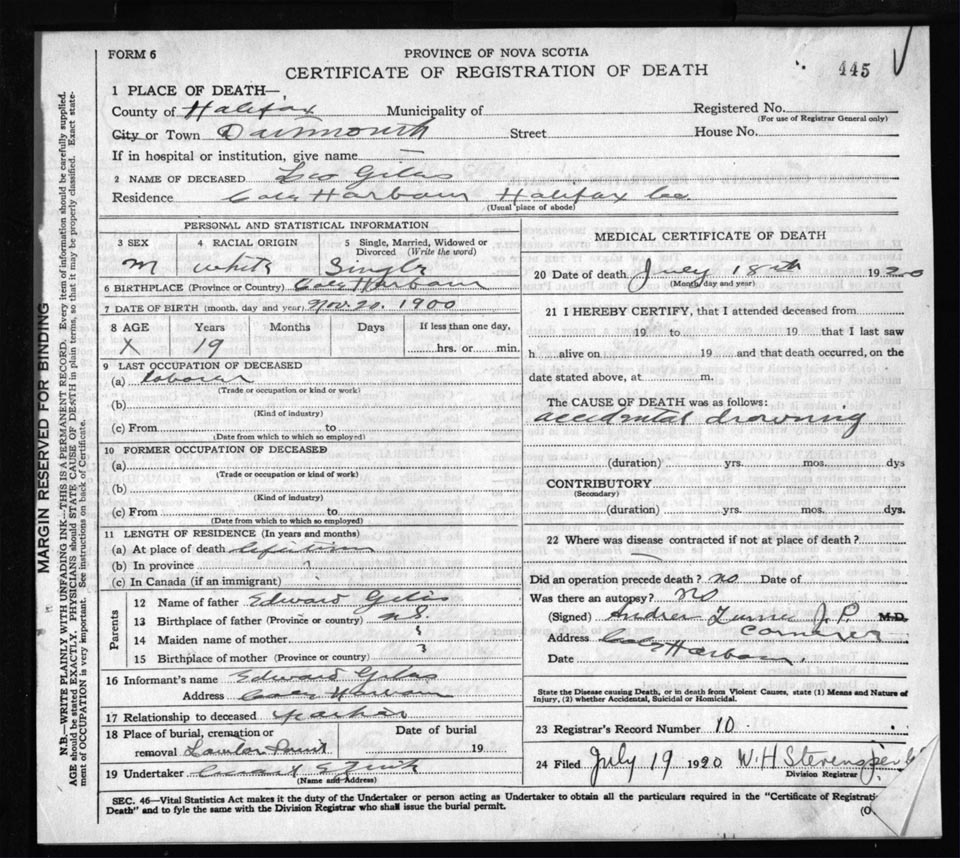 FORM 6
PROVINCE OF NOVA SCOTIA
CERTIFICATE OF REGISTRATION OF DEATH
445
1 PLACE OF DEATH—
County of Halifax Municipality of Registered No.
(For use of Registrar General only)
City or Town Dartmouth Street House No.
If in hospital or institution, give name —
2 NAME OF DECEASED Leo Giles
Residence Cole Harbour Halifax Co.
(Usual place of abode)
PERSONAL AND STATISTICAL INFORMATION
3 SEX 4 RACIAL ORIGIN 5 Single, Married, Widowed or Divorced (Write the word)
M white Single
6 BIRTHPLACE (Province or Country) Cole Harbour
7 DATE OF BIRTH (month, day and year) Nov. 20. 1900
8 AGE Years Months Days If less than one day,
X 19 hrs. or min.
9 LAST OCCUPATION OF DECEASED
(a) Laborer
(Trade or occupation or kind or work)
(b)
(Kind of industry)
(c) From to
(Date from which to which so employed)
10 FORMER OCCUPATION OF DECEASED
(a)
(Trade or occupation or kind of work)
(b)
(Kind of industry)
(c) From to
(Date from which to which so employed)
11 LENGTH OF RESIDENCE (In years and months)
(a) At place of death lifetime
(b) In province
(c) In Canada (if an immigrant)
Parents
12 Name of father Edward Giles
13 Birthplace of father (Province or country) N.S.
14 Maiden name of mother
15 Birthplace of mother (Province or country)
16 Informant's name Edward Giles
Address Cole Harbour
17 Relationship to deceased Father
18 Place of burial, cremation or removal Lawlor Point Date of burial 19
19 Undertaker
(Name and Address)
MEDICAL CERTIFICATE OF DEATH
20 Date of death July 18th 1920
(Month, day and year)
21 I HEREBY CERTIFY, that I attended deceased from
19 to 19 that I last saw
h alive on 19 and that death occurred, on the
date stated above, at m.
The CAUSE OF DEATH was as follows:
accidental drowning
(duration) yrs. mos. dys
CONTRIBUTORY
(Secondary)
(duration) yrs. mos. dys.
22 Where was disease contracted if not at place of death?
—
Did an operation precede death? no Date of
Was there an autopsy? No
(Signed) Andrew Turner J.P. M.D.
Coroner
Address Cole Harbour.
Date
State the Disease causing Death, or in death from Violent Causes, state (1) Means and Nature of
Injury, (2) whether Accidental, Suicidal or Homicidal.
23 Registrar's Record Number 10
24 Filed July 19 1920 W. H. Stevens
Division Registrar
SEC. 46—Vital Statistics Act makes it the duty of the Undertaker or person acting as Undertaker to obtain all the particulars required in the "Certificate of Registrati
Death" and to fyle the same with the Division Registrar who shall issue the burial permit.
(O
MARGIN RESERVED FOR BINDING
N.B.—WRITE PLAINLY WITH UNFADING INK—THIS IS A PERMANENT RECORD. Every item of information should be carefully supplied.
AGE should be stated EXACTLY. PHYSICIANS should STATE CAUSE OF DEATH in plain terms, so that it may be properly classified. Exact statement of OCCUPATION is very important. See instructions on back of Certificate.